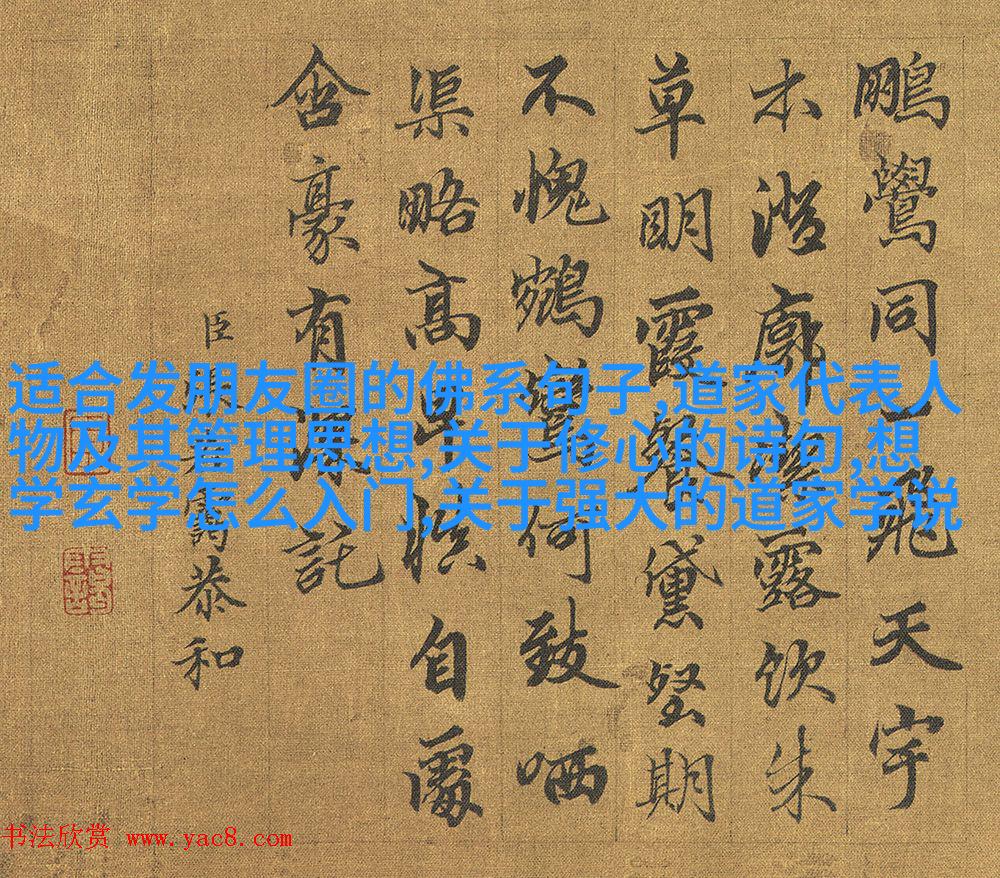 鵬鷽同一飛天宇
本澄廓露飲朱
草明霞餐黛堅期
不愧鵷鸞何致哂
渠略高此自處
含豪有深託
臣恭和
适合发朋友圈的佛系句子,道家代表人
物及其管理思想,关于修心的诗句,想
学玄学怎么入门,关于强大的道家学说
书法欣赏 www.yac8.com